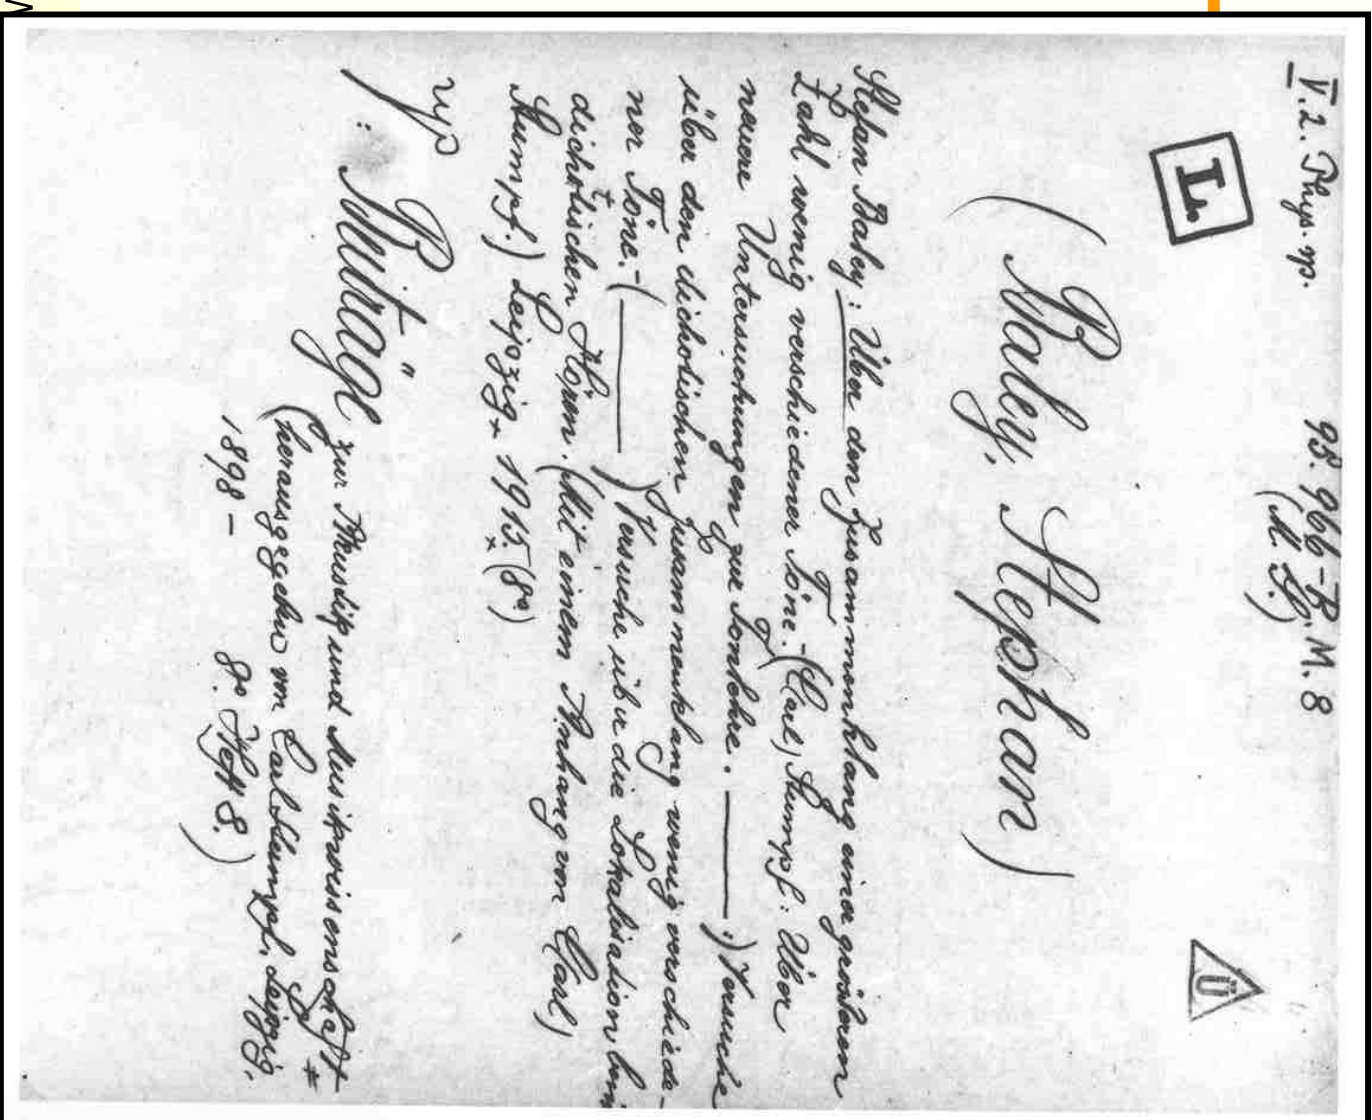 V.2. Phys. sp.
93. 966-B. M. 8
(M. S.)
L.
Ü
(Baley, Stephan)
Stefan Baley: Über den Zusammenklang einer grösseren
Zahl wenig verschiedener Töne.-(Carl) Stumpf: Über
neuere Untersuchungen zur Tonlehre. —— :) Versuche
über den dichotischen Zusammenklang wenig verschiede-
ner Töne.-( —— ) Versuche über die Lokalisation beim
dichotischen Hören. (Mit einem Anhang von Carl)
Stumpf.) Leipzig, 1915. (8°)
Beiträge zur Akustik und Musikwissenschaft *
(herausgegeben von Carl Stumpf. Leipzig,
1898 - 8°. Heft 8.)